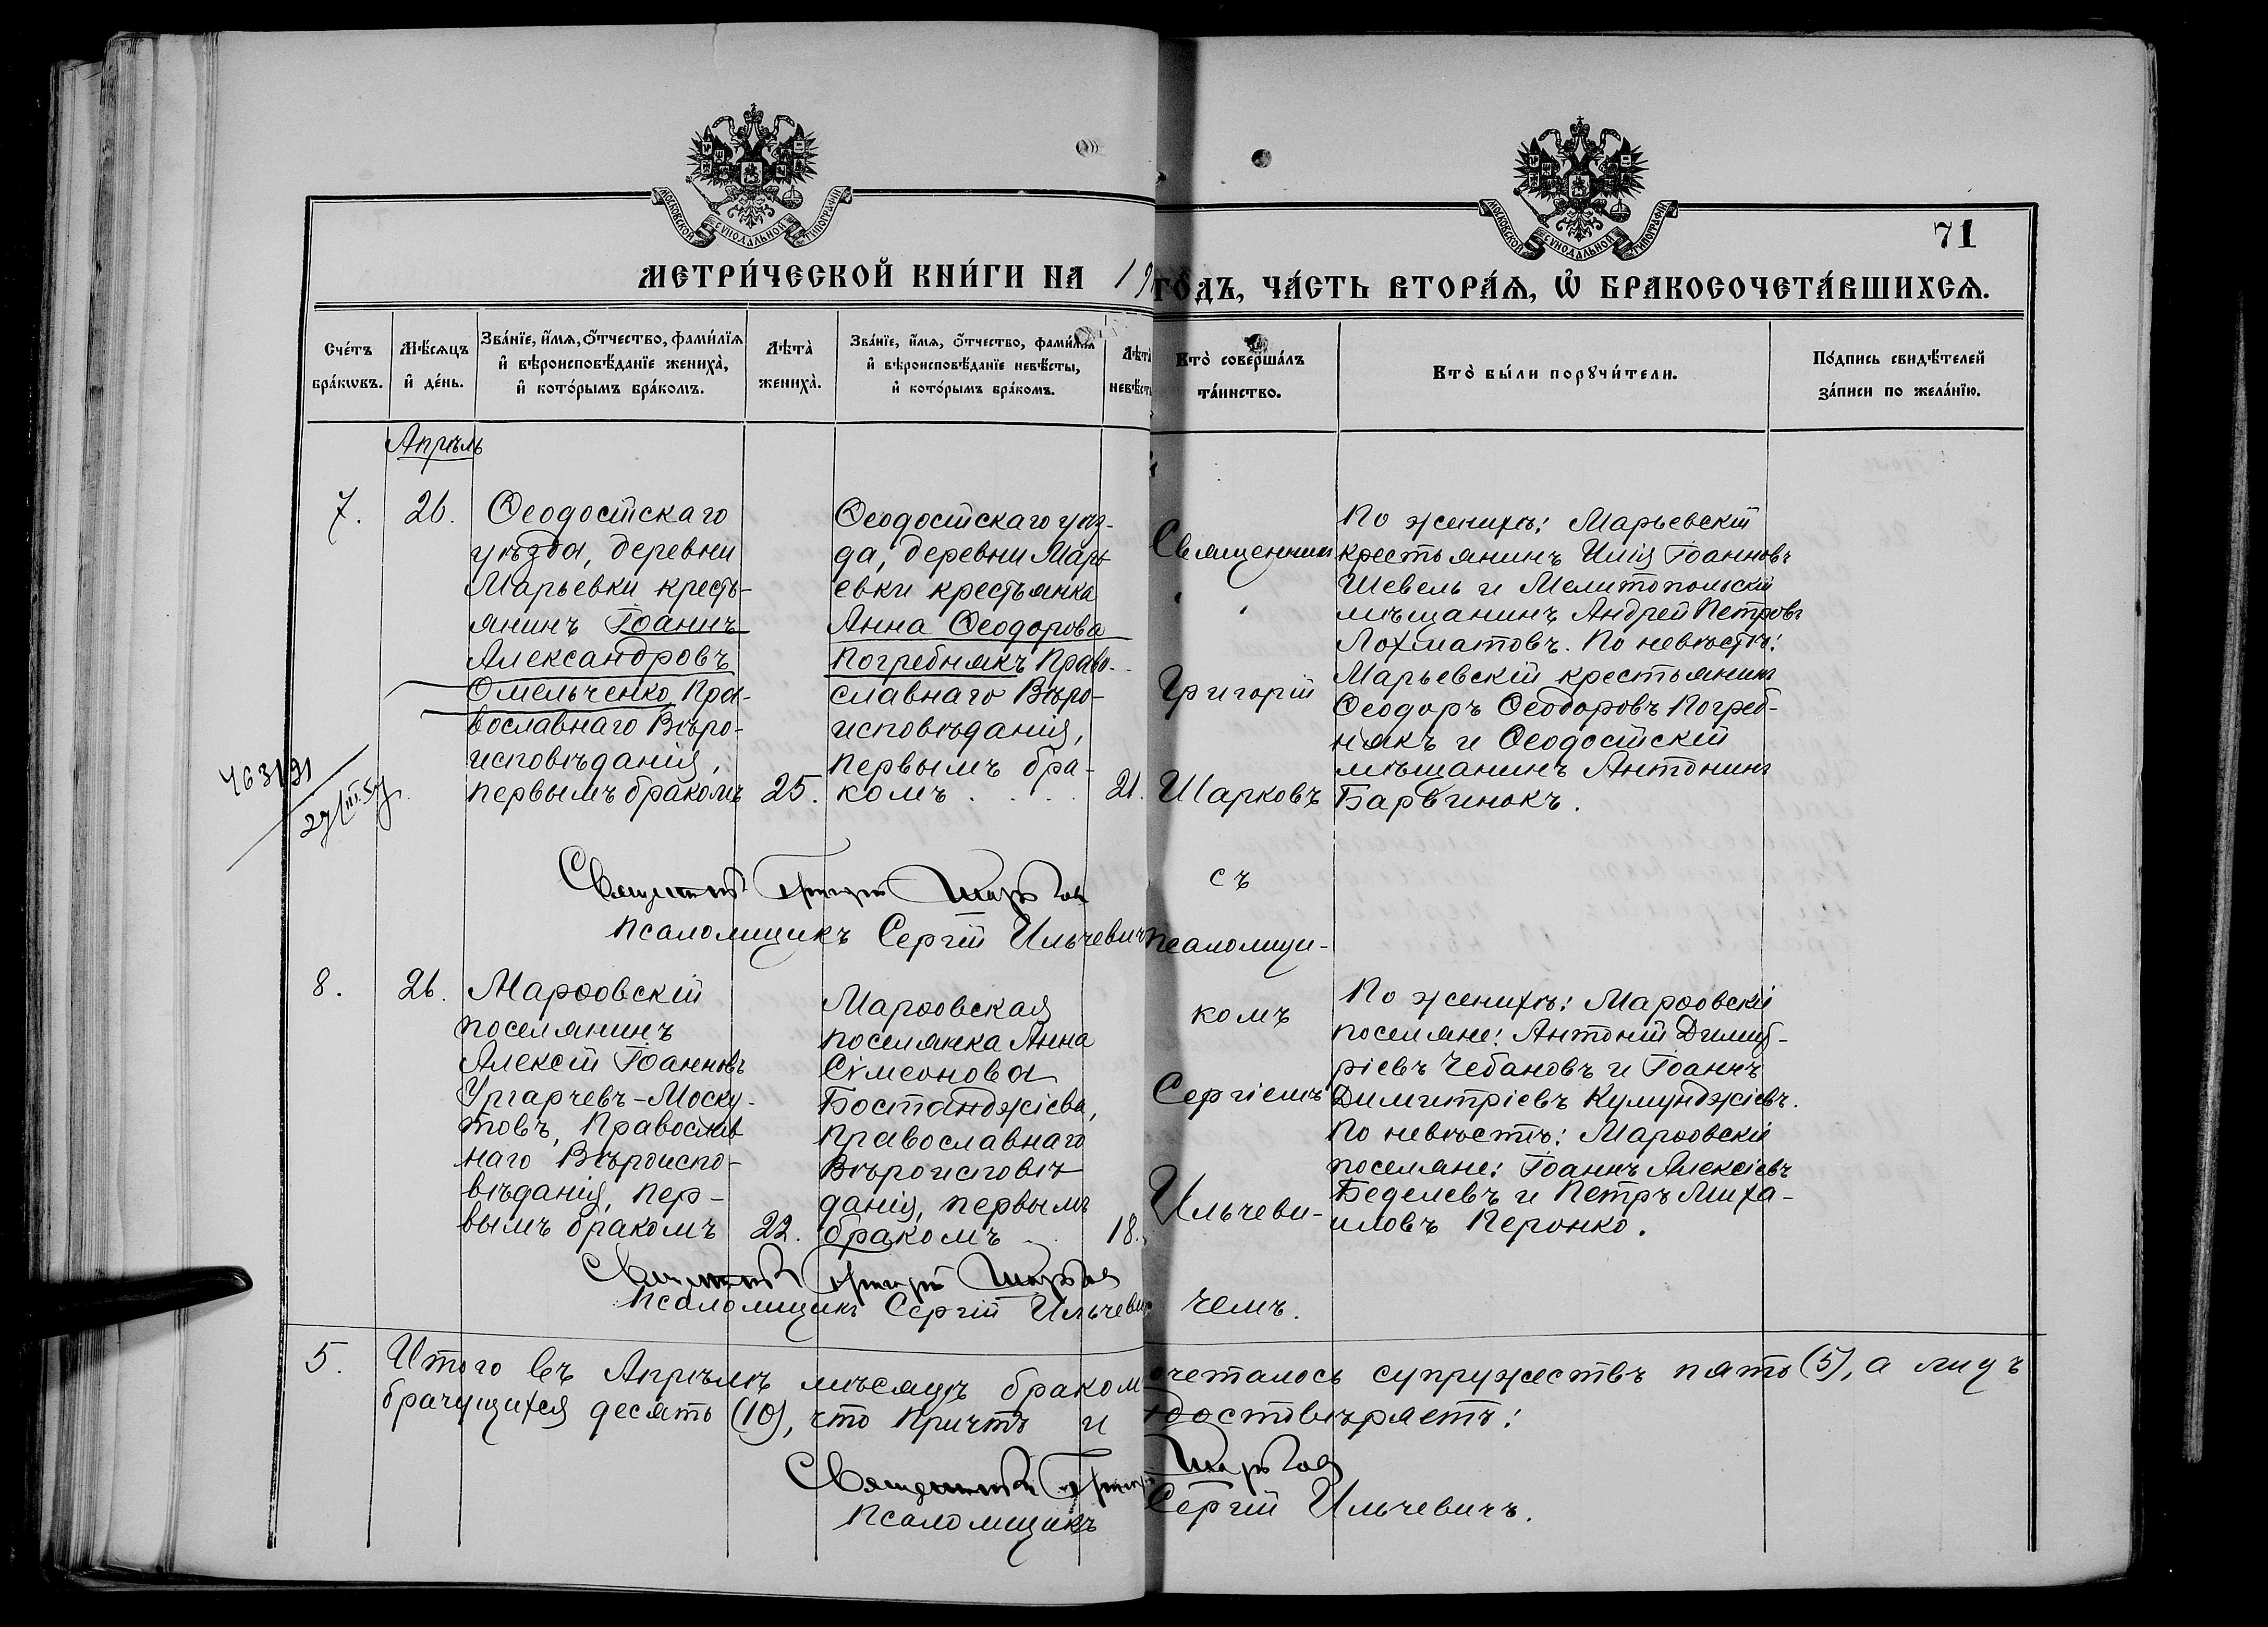 МОСКОВСКОЙ СУНОДАЛЬНОЙ ТИПОГРАФІИ
МОСКОВСКОЙ СУНОДАЛЬНОЙ ТИПОГРАФІИ
71
МЕТРИ́ЧЕСКОЙ КНИ́ГИ НА 19
ГО́ДЪ, ЧА́СТЬ ВТОРА́Я, Ѡ БРАКОСОЧЕТА́ВШИХСЯ.
Сче́тъ
бра́кѡвъ.
Мѣ́сяцъ
и де́нь.
Зва́нїе, и́мя, ѻ́тчество, фами́лїя
и҆ вѣроисповѣ́данїе жениха̀,
и҆ кото́рымъ бра́комъ.
Лѣта̀
жениха̀.
Зва́нїе, и́мя, ѻ́тчество, фами́лїя
и҆ вѣроисповѣ́данїе невѣ́сты,
и҆ кото́рымъ бра́комъ.
Лѣта̀
невѣ́сты
Кто̀ соверша́лъ
та́инство.
Кто̀ бы́ли порꙋчи́тели.
По́дпись свидѣ́телей
за́писи по жела́нїю.
Апрѣль
7.
26.
Ѳеодосійскаго
уѣзда, деревни
Марьевки кресть-
янинъ Іоаннъ
Александровъ
Омельченко, Пра-
вославнаго Вѣро-
исповѣданія,
первымъ бракомъ
25.
Ѳеодосійскаго уѣз-
да, деревни Марь-
евки крестьянка
Анна Ѳеодорова
Погребнякъ Право-
славнаго Вѣро-
исповѣданія,
первымъ бра-
комъ . . . .
21.
Священник
Григорій
Шарковъ
съ
псаломщи-
комъ
Сергіемъ
Ильчеви-
чемъ.
По женихѣ: Марьевскій
крестьянинъ Илія Іоанновъ
Шевель и Мелитопольскій
мѣщанинъ Андрей Петровъ
Лохматовъ. По невѣстѣ:
Марьевскій крестьянинъ
Ѳеодоръ Ѳеодоровъ Погреб-
някъ и Ѳеодосійскій
мѣщанинъ Антонинъ
Барвинокъ.
463191
Священникъ Григорій Шарковъ
Псаломщикъ Сергій Ильчевичъ
8.
26.
Марѳовскій
поселянинъ
Алексій Іоанновъ
Ургарчевъ-Моску-
товъ, Православ
наго Вѣроиспо-
вѣданія, пер-
вымъ бракомъ
22.
Марѳовская
поселянка Анна
Сімеонова
Бостанджіева,
Православнаго
Вѣроисповѣ
данія, первымъ
бракомъ . .
18.
По женихѣ: Марѳовскіе
поселяне: Антоній Димит-
ріевъ Чебановъ и Іоаннъ
Димитріевъ Кумунджіевъ.
По невѣстѣ: Марѳовскіе
поселяне: Іоаннъ Алексіевъ
Беделевъ и Петръ Миха-
иловъ Перонко.
Священникъ Григорій Шарковъ
Псаломщикъ Сергій Ильчевич
5.
Итого въ Апрѣлѣ мѣсяцѣ браком очеталось супружествъ пять (5), а лицъ
брачущихся десять (10), что Причтъ и удостовѣряетъ:
Священникъ Григорій Шарковъ
Псаломщикъ Сергій Ильчевичъ.